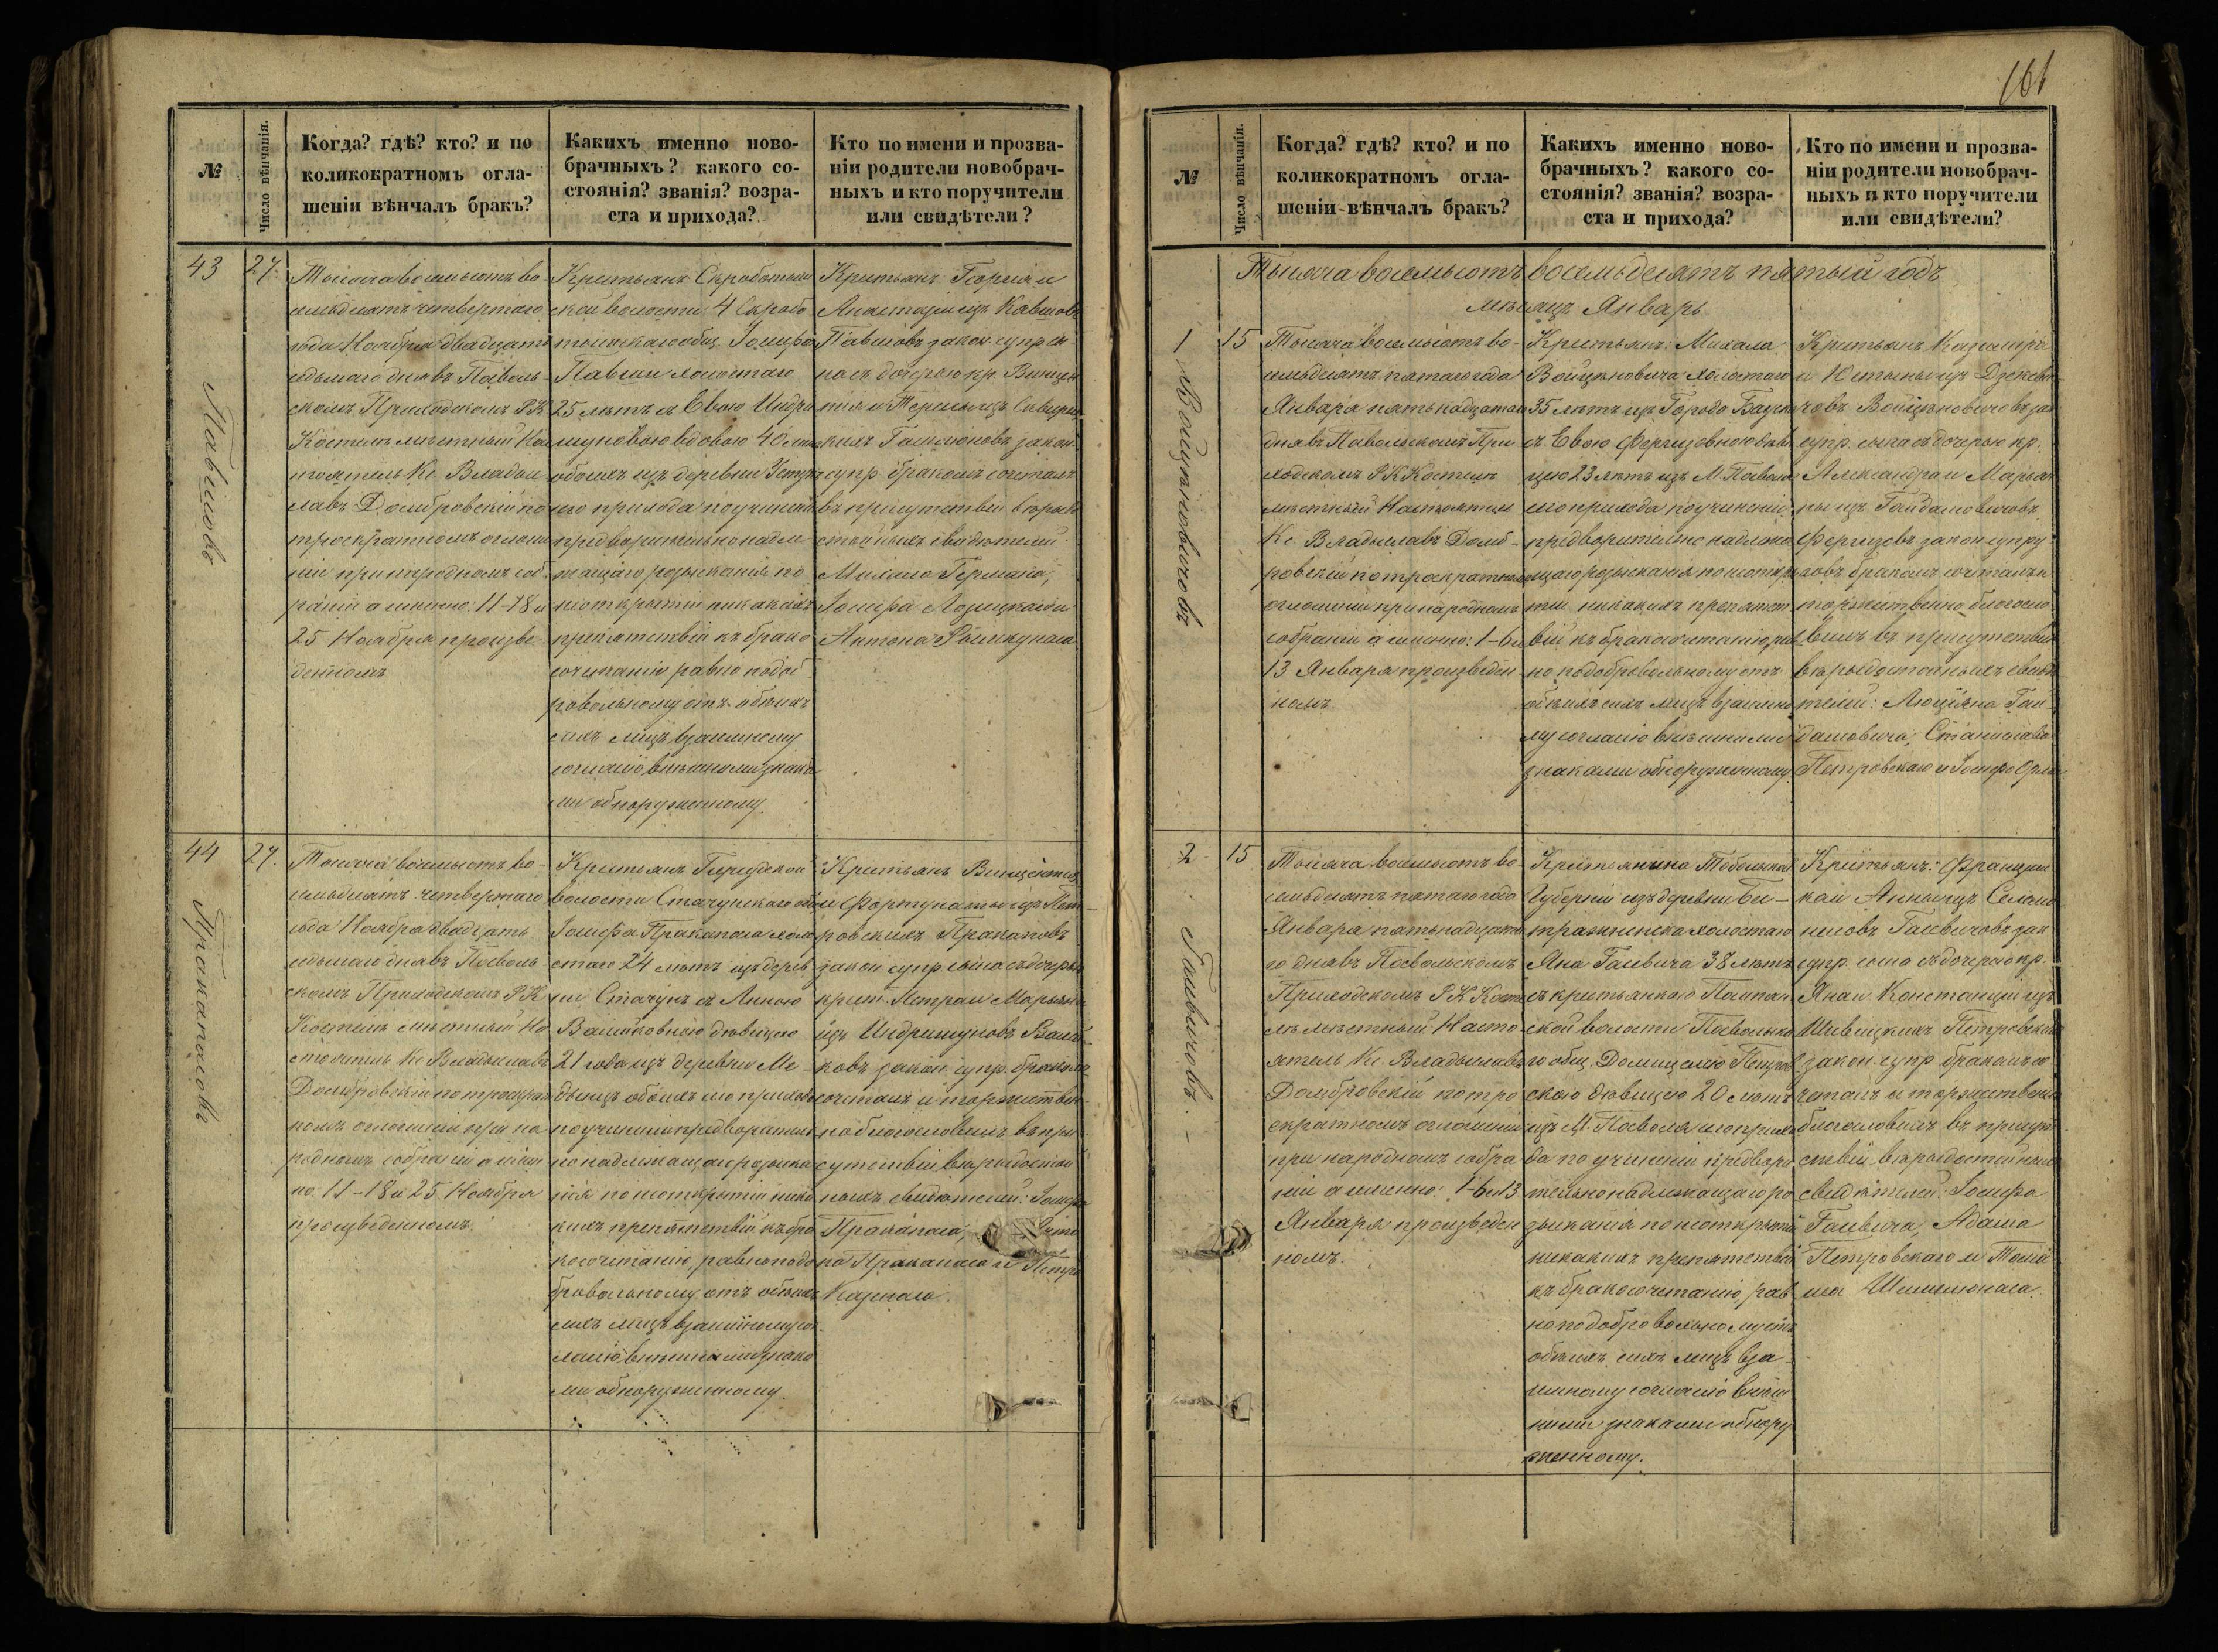 №
Число вѣнчанія.
Когда? гдѣ? кто? и по
коликократномъ огла-
шеніи вѣнчалъ бракъ?
Какихъ именно ново-
брачныхъ? какого со-
стоянія? званія? возра-
ста и прихода?
Кто по имени и прозва-
ніи родители новобрач-
ныхъ и кто поручители
или свидѣтели?
43
27.
Павшовъ
Тысяча восемьсотъ во
семьдесятъ четвертаго
года Ноября двадцать
седьмаго дня въ Поволь
скомъ Приходскомъ Р К
Костелѣ мѣстный На
стоятель Кс. Владыс
лавъ Домбровскій по
троекратномъ оглаше
ніи при народномъ соб
раніи а именно: 11-18 и
25 Ноября произве
денномъ
Крестьянъ Скроботыш
ской волости, 4 Скробо
тышскаго общ. Іосифа
холостаго
25 лѣтъ съ Евою Индри
шуновою вдовою 40 лѣтъ
обоихъ изъ деревни
сего прихода по учиненіи
предварительно надле
жащаго розысканія по
неоткрытіи никакихъ
препятствій къ брако
сочетанію равно по доб
ровольному отъ обоихъ
сихъ лицъ взаимному
согласію внѣшними знака
ми обнаруженному.
Крестьянъ Георгія и
Анастазіи изъ
законн. супр. сы
на съ дочерью кр. Винцен
тія и Терезы изъ
закон.
супр. бракомъ сочеталъ
въ присутствіи вѣрыдо
стойныхъ свидѣтелей:
Михала Германа,
Іосифа Лозицкаго и
Антона
44
27.
Праканасовъ
Тысяча восемьсотъ во-
семьдесятъ четвертаго
года Ноября двадцать
седьмаго дня въ Поволь
скомъ Приходскомъ Р К
Костелѣ мѣстный На
стоятель Кс. Владыславъ
Домбровскій по троекрат
номъ оглашеніи при на
родномъ собраніи а имен
но: 11-18 и 25 Ноября
произведенномъ.
Крестьянъ
волости Стачунскаго общ.
Іосифа Праканаса холо
стаго 24 лѣтъ изъ дерев
ни Стачунъ съ Анною
Вайшковною дѣвицею
21 года изъ деревни Ме-
обоихъ сего прихода
по учиненіи предварител
но надлежащаго розыска
нія по неоткрытіи ника
кихъ препятствій къ бра
косочетанію, равно по до
бровольному отъ обоихъ
сихъ лицъ взаимному со
гласію внѣшними знака
ми обнаруженному.
Крестьянъ Винцентія
и Фортунаты изъ Пет
ровскихъ Пракановъ
закон. супр. сына съ дочерью
крест. Петра и Марьяны
изъ Индришуновъ Вайш
ковъ закон. супр. бракомъ
сочеталъ и торжествен
но благословилъ въ при
сутствіи вѣрыдостой
ныхъ свидѣтелей: Іосифа
Праканаса,
Праканаса и Петра
161
№
Число вѣнчанія.
Когда? гдѣ? кто? и по
коликократномъ огла-
шеніи вѣнчалъ бракъ?
Какихъ именно ново-
брачныхъ? какого со-
стоянія? званія? возра-
ста и прихода?
Кто по имени и прозва-
ніи родители новобрач-
ныхъ и кто поручители
или свидѣтели?
Тысяча восемьсотъ восемьдесятъ пятый годъ
мѣсяцъ Январь
1
15
Войцѣновичовъ
Тысяча восемьсотъ во-
семьдесятъ пятаго года
Января пятьнадцатаго
дня въ Павольскомъ При
ходскомъ Р К Костелѣ
мѣстный Настоятель
Кс. Владыславъ Домб-
ровскій по троекратномъ
оглашеніи при народномъ
собраніи а именно: 1-6 и
13 Января произведен
номъ
Крестьянъ: Михала
Войцѣновича холостаго
35 лѣтъ изъ Города Бауска
съ Евою Фергизовною дѣви
цею 23 лѣтъ изъ М. Поволя
сего прихода по учиненіи
предварительно надлежа
щаго розысканія по неоткры
тіи никакихъ препятст
вій къ бракосочетанію рав
но по добровольному отъ
обѣихъ сихъ лицъ взаимно
му согласію внѣшними
знаками обнаруженному.
Крестьянъ Казимира
и Юстыны изъ
Войцѣновичовъ зак
супр. сына съ дочерью кр.
Александра и Марьян
ны изъ Гайдамовичовъ
Фергизовъ закон супру
говъ бракомъ сочеталъ и
торжественно благосло
вилъ въ присутствіи
вѣрыдостойныхъ свидѣ
телей: Люціяна Гай-
дамовича, Станислава
Петровскаго и Іосифа
2
15
Гасвичовъ.
Тысяча восемьсотъ во
семьдесятъ пятаго года
Января пятьнадцата
го дня въ Повольскомъ
Приходскомъ Р К Косте
лѣ мѣстный Насто
ятель Кс. Владыславъ
Домбровскій по тро
екратномъ оглашеніи
при народномъ собра
ніи а именно: 1-6 и 13
Января произведен
номъ.
Крестьянина Тобольской
Губерніи изъ деревни
холостаго
Яна Гасвича 38 лѣтъ
съ крестьянкою
ской волости Повольска
го общ. Домицелею Петров
скою дѣвицею 20 лѣтъ
изъ М. Поволя сего прихо
да по учиненіи предвари
тельно надлежащаго ро
зысканія по неоткрытіи
никакихъ препятствій
къ бракосочетанію, рав
но по добровольному отъ
обѣихъ сихъ лицъ вза
имному согласію внѣш
ними знаками обнару
женному.
Крестьянъ: Францишка
и Анны изъ
Гасвичовъ зак
супр. сына съ дочерью кр.
Яна и Констанціи изъ
Петровскихъ
закон. супр. бракомъ со
четалъ и торжественно
благословилъ въ присут
ствіи вѣрыдостойныхъ
свидѣтелей: Іосифа
Гасвича, Адама
Петровскаго и Тома
ша